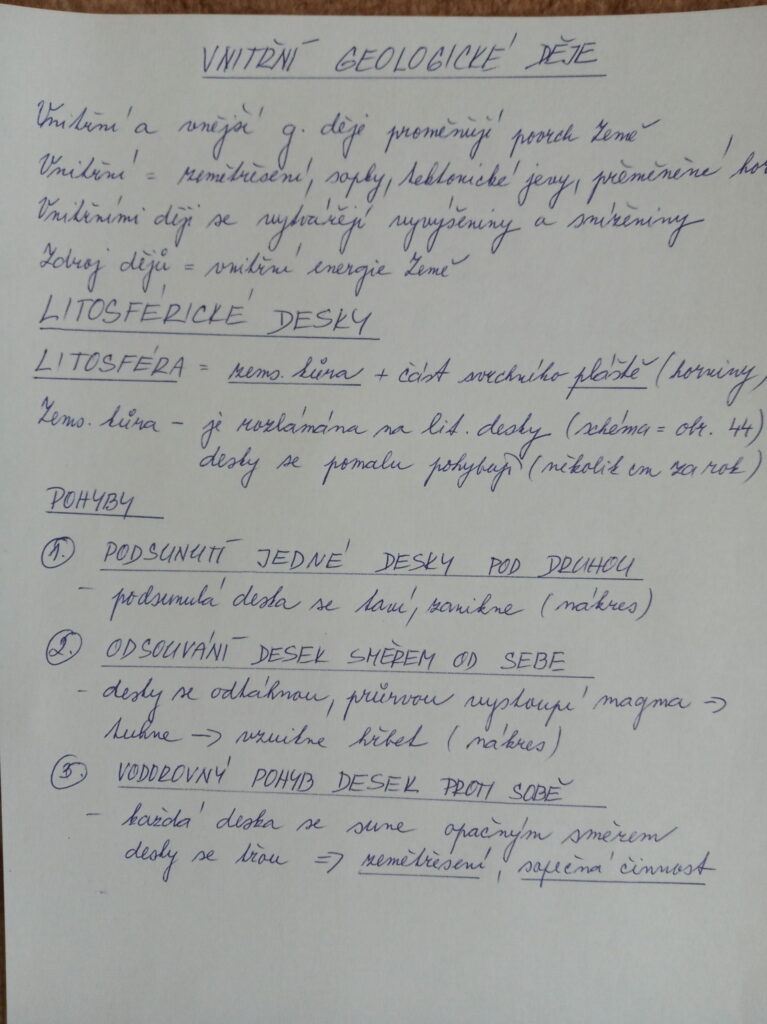 VNITŘNÍ GEOLOGICKÉ DĚJE
Vnitřní a vnější g. děje proměňují povrch Země
Vnitřní = zemětřesení, sopky, tektonické jevy, přeměněné hor
Vnitřními ději se vytvářejí vyvýšeniny a sníženiny
Zdroj dějů = vnitřní energie Země
LITOSFÉRICKÉ DESKY
LITOSFÉRA = zems. kůra + část svrchního pláště (horniny,
Zems. kůra - je rozlámána na lit. desky (schéma = obr. 44)
desky se pomalu pohybují (několik cm za rok)
POHYBY
1. PODSUNUTÍ JEDNÉ DESKY POD DRUHOU
- podsunulá deska se taví, zanikne (nákres)
2. ODSOUVÁNÍ DESEK SMĚREM OD SEBE
- desky se odtáhnou, průrvou vystoupí magma =>
tuhne -> vznikne hřbet (nákres)
3. VODOROVNÝ POHYB DESEK PROTI SOBĚ
- každá deska se sune opačným směrem
desky se třou => zemětřesení, sopečná činnost